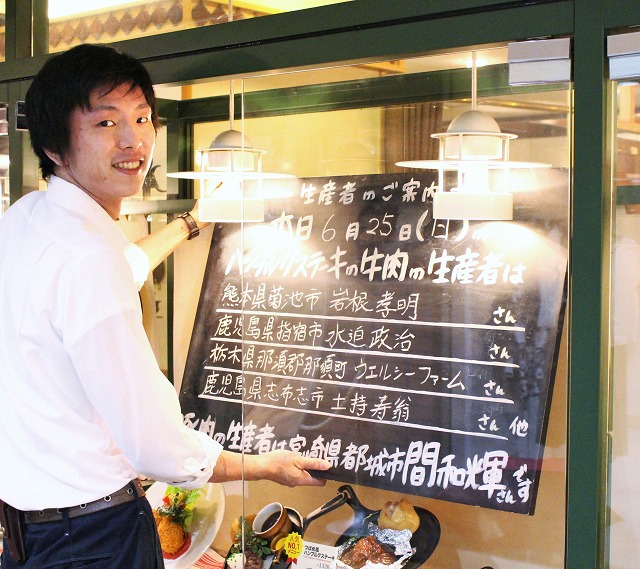 生産者のご案内
本日6月25日(日)の
ハンブルグステーキの牛肉の生産者は
熊本県菊池市 岩根孝明 さん
鹿児島県指宿市 水迫政治 さん
栃木県那須郡那須町 ウエルシーファーム さん
鹿児島県志布志市 土持寿翁 さん 他
豚肉の生産者は宮崎県都城市間和輝さんです
人気
NO.1
メニュー
つばめ風
ハンブルグステーキ